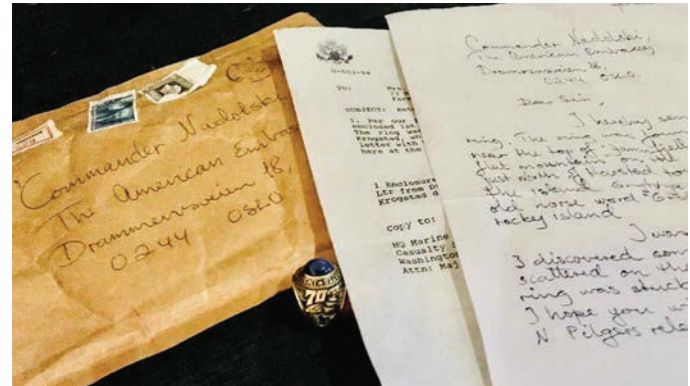 Commander Nadolski
The American Embas
Drammensveien 18,
0244 OSLO
TO: Mrs.
SUBJECT:
1. Per our
enclosed
The ring was
Krogstad,
letter with
here at the
1 Enclosure
Ltr from
Krogstad
copy to:
HQ Marine
Casualty
Washington
Attn: Maj
Commander Nadolski,
The American Embassy
Drammensveien 18,
0244 OSLO.
Dear Sir,
I hereby sen
ring. The ring was foun
near the top of
that mountain on the
just north of Harstad
the island
old norse word
rocky island
I was
I discovered som
scattered on the
ring was stuck
I hope you w
N Pilgers rela
70